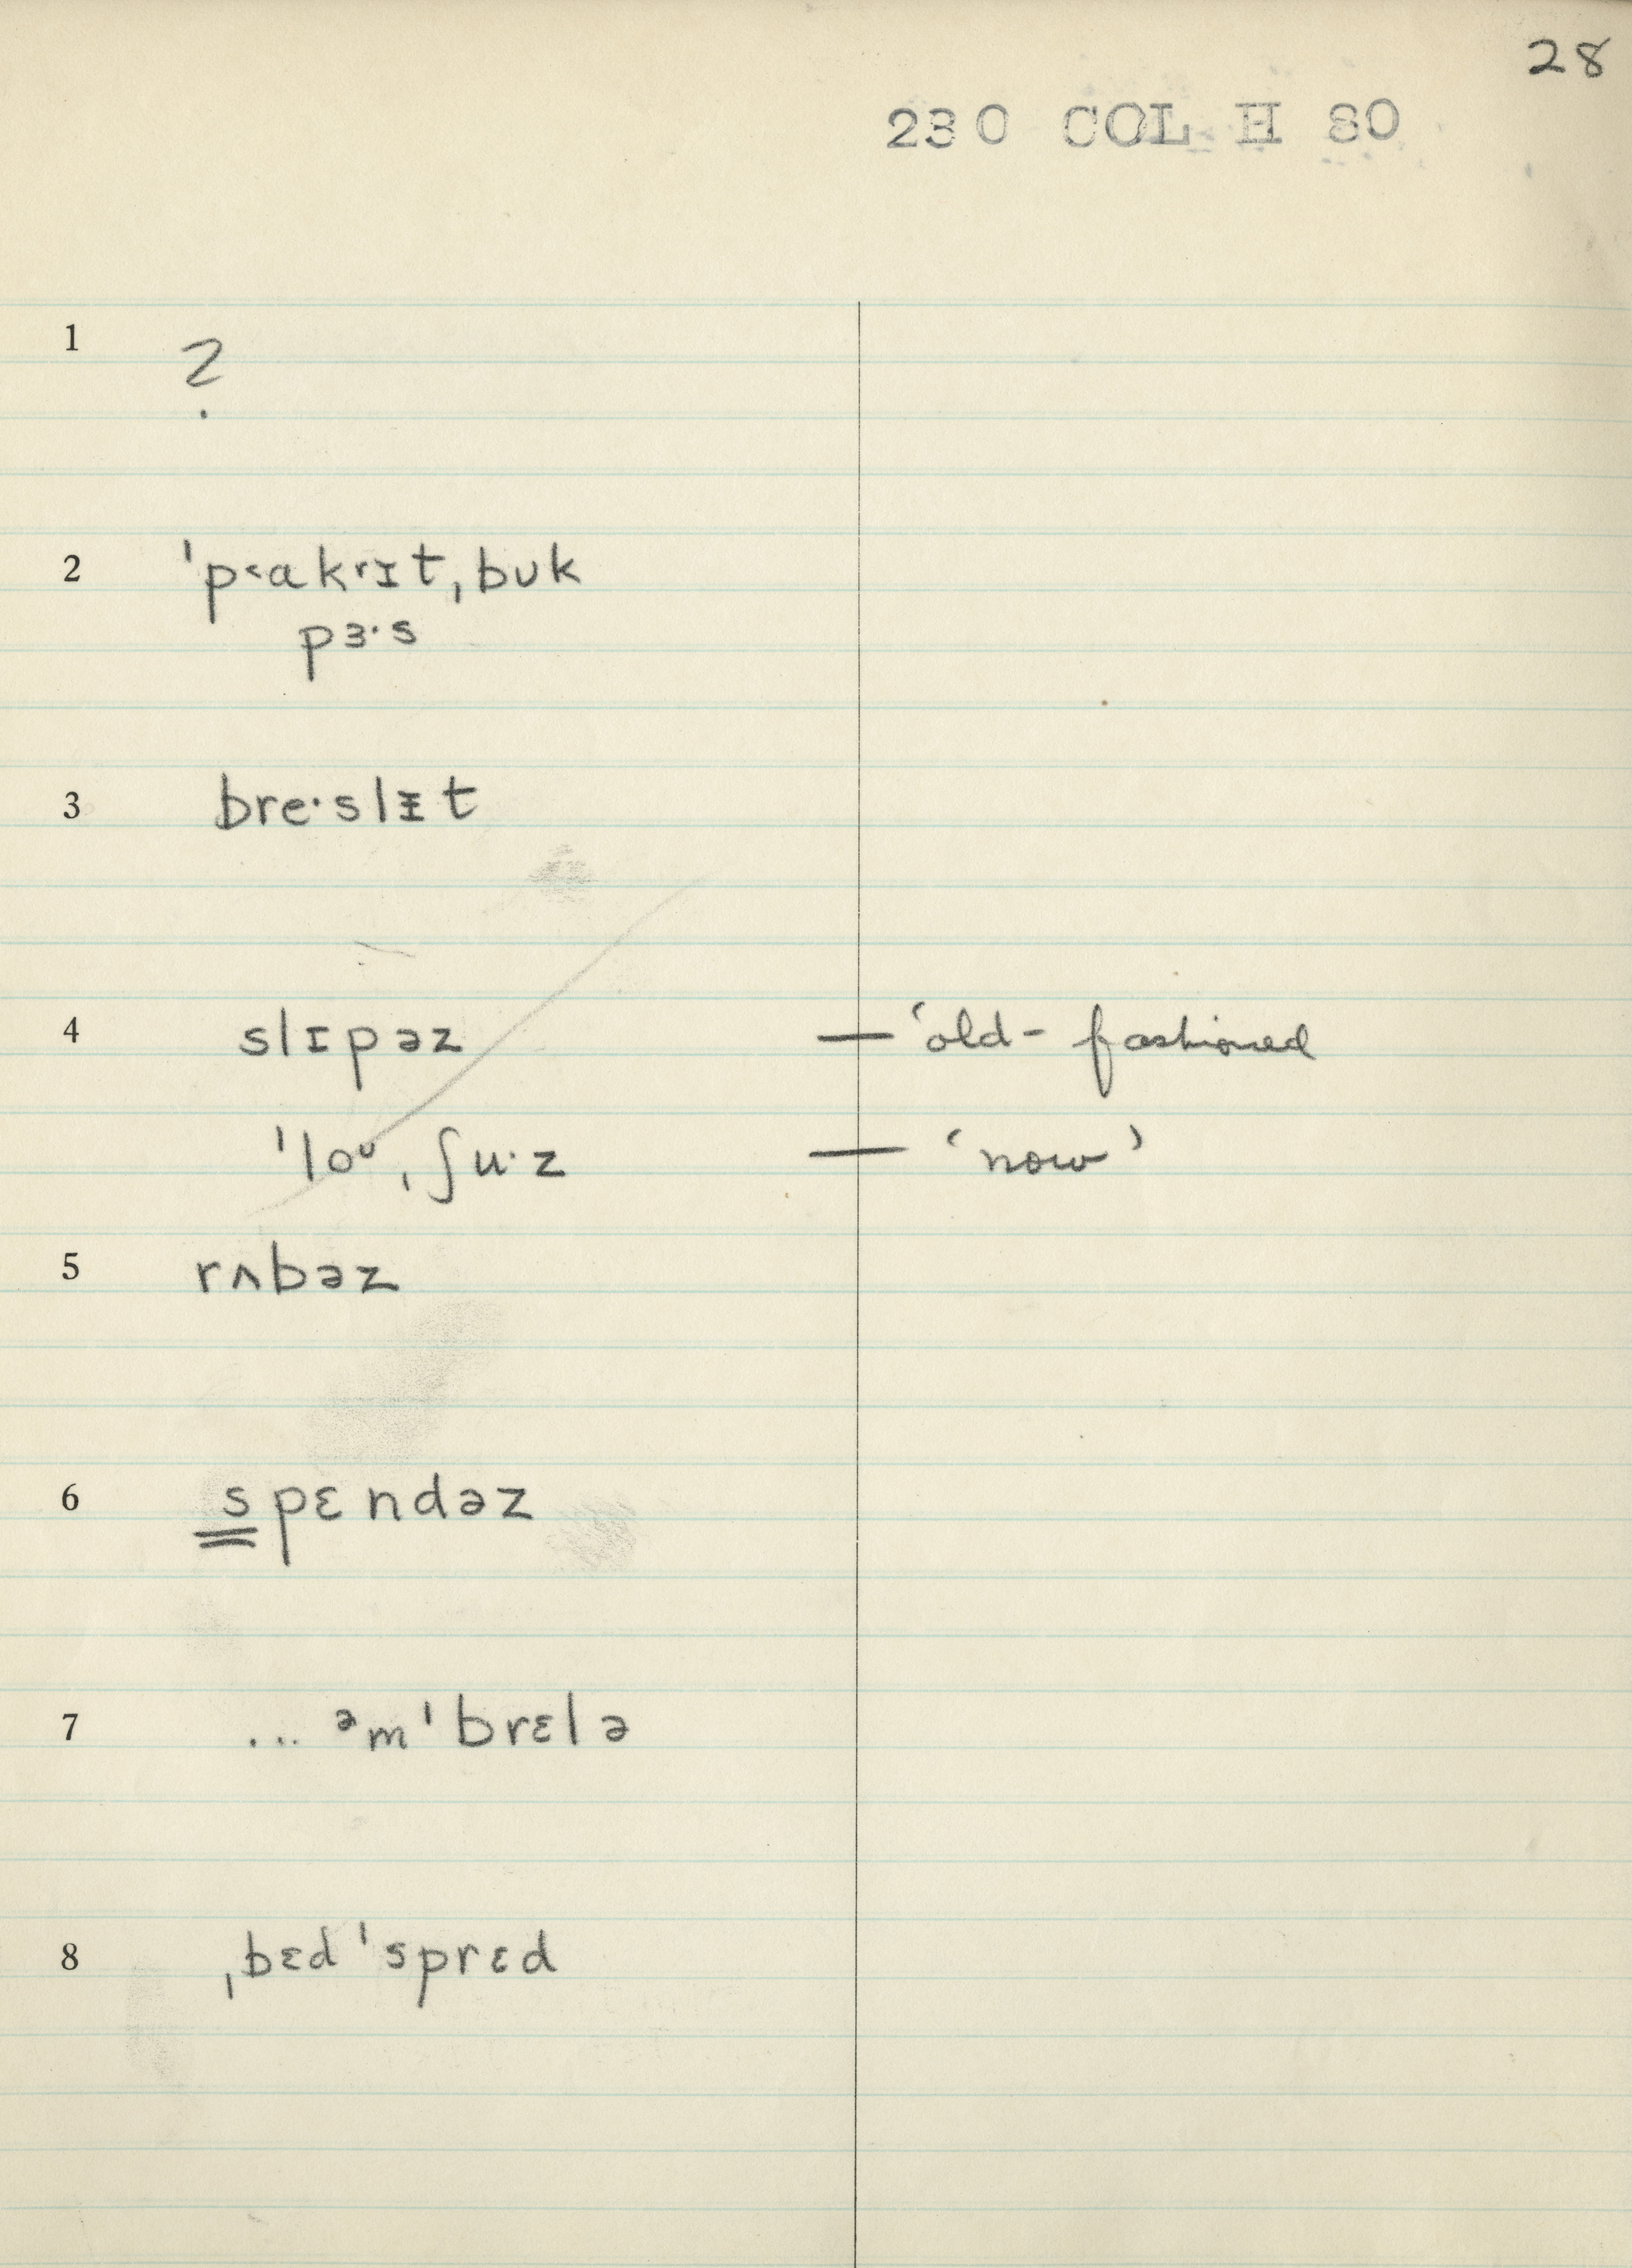 28
230 COL H 80
1 ?
2 ˈp˂ɑk˂ɪt ˌbʊk
pɜ·s
3 bre·slᵻt
4 slɪpəz — ‘old-fashioned
ˈloᶷˌʃu·z — ‘now’
5 rʌbəz
6 spɛndəz
7 ... ᵊmˈbrɛlə
8 ˌbɛdˈsprɛd